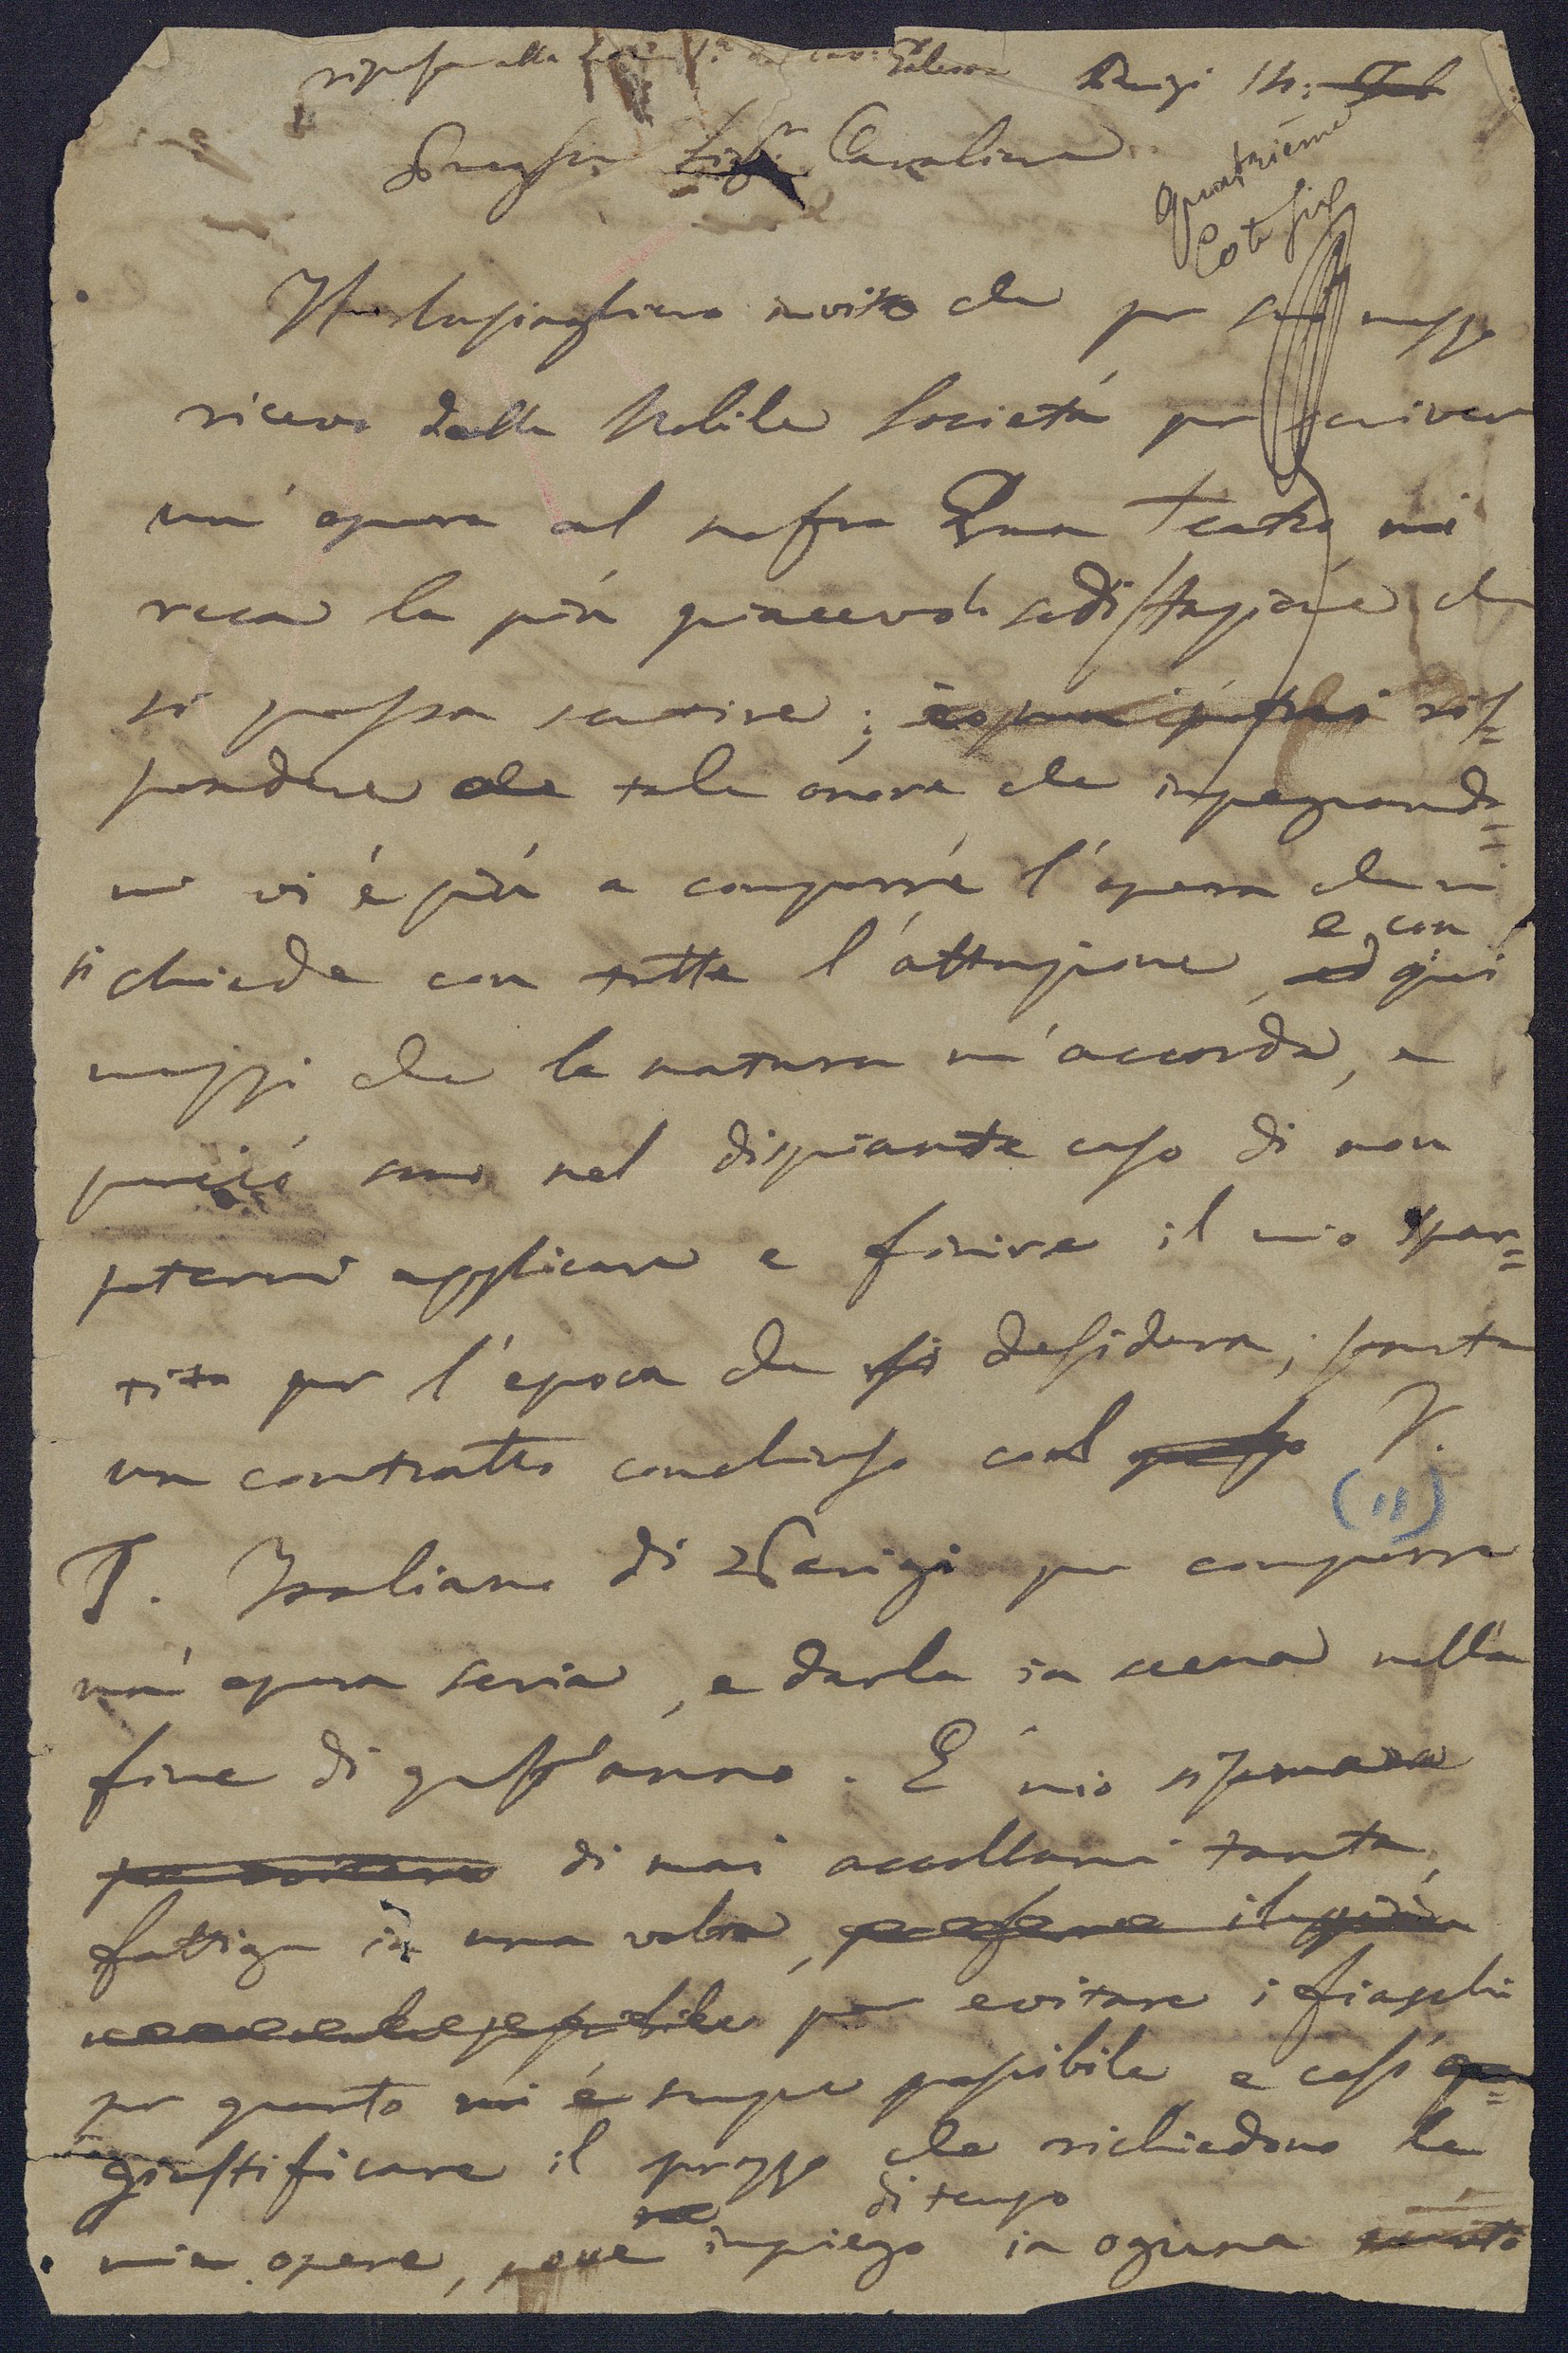 risposta alla Parigi 14: Feb
Quatrième
Cotes
Pregmo. Sigr. Cavaliere
Il lusinghiero invito che per suo mezzo
ricevo dalla Nobile Società per scrivere
un' opera al nostro Gran Teatro, mi
reca la più piacevole sodisfazione che
si possa sentire; ris=
pondere tale onore che impegnando=
mi vi è più a comporre l'opera che mi
si chiede con tutta l'attenzione, ed e con quei
mezzi che la natura m'accorda, e
perciò sono nel dispiacente caso di non
potermi applicare e finire il mio spar=
tito per l'epoca che si desidera; stante
un contratto conchiuso col R.
(11)
T. Italiano di Parigi per comporre
un' opera seria, e darla in scena nella
fine di quest'anno. E' mio
per evitare di mai accollarmi tanta
fattiga in una volta,
per evitare i fiaschi
per quanto mi è sempre possibile e così
giustificare il prezzo che richiedono le
di tempo
mie opere, impiego in ognuna